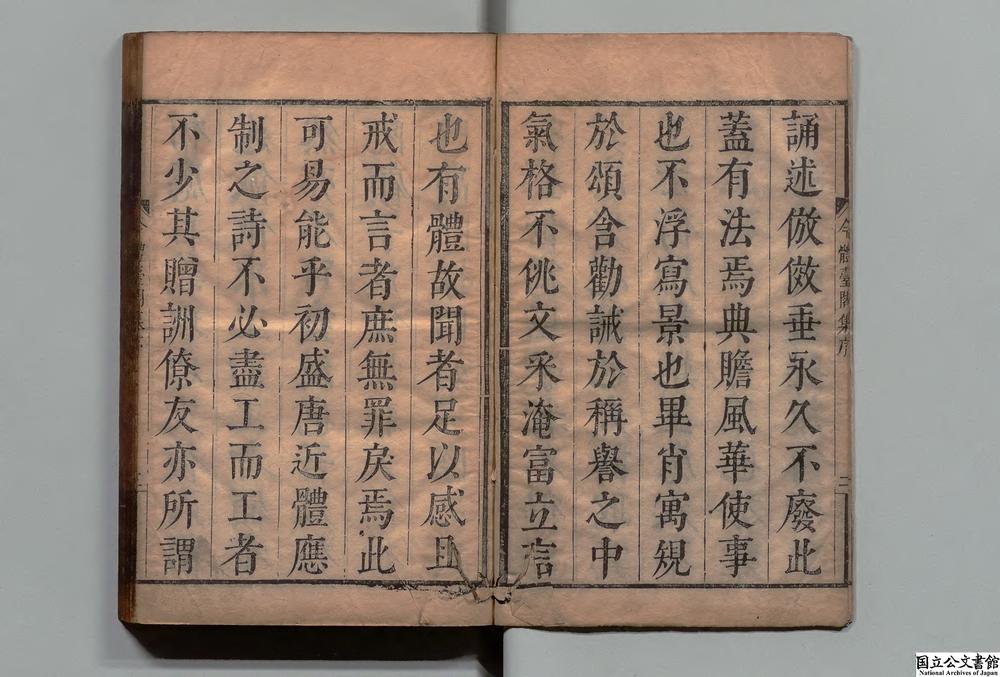 誦述倣傚垂永久不廢此
蓋有法焉典贍風華使事
也不浮寫景也畢肖寓規
於頌含勸誡於稱譽之中
氣格不佻文采淹富立言
也有體故聞者足以感且
戒而言者庶無罪戾焉此
可易能乎初盛唐近體應
制之詩不必盡工而工者
不少其贈詶僚友亦所謂
今體臺閣集序
二
国立公文書館
National Archives of Japan